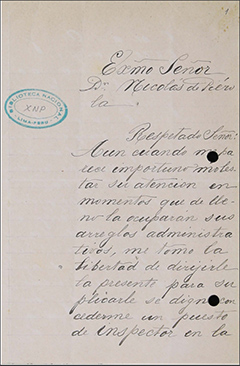 Exmo Señor
Dn. Nicolas de Piéro
la.
BIBLIOTECA NACIONAL
XNP
LIMA-PERU
Respetado Señor:
Aun cuando me pa
rece importuno moles
tar su atencion en
momentos que de lle
no la ocuparan sus
arreglos administra
tivos, me tomo la
libertad de dirijirle
la presente para su
plicarle se digne con
cederme un puesto
de inspector en la